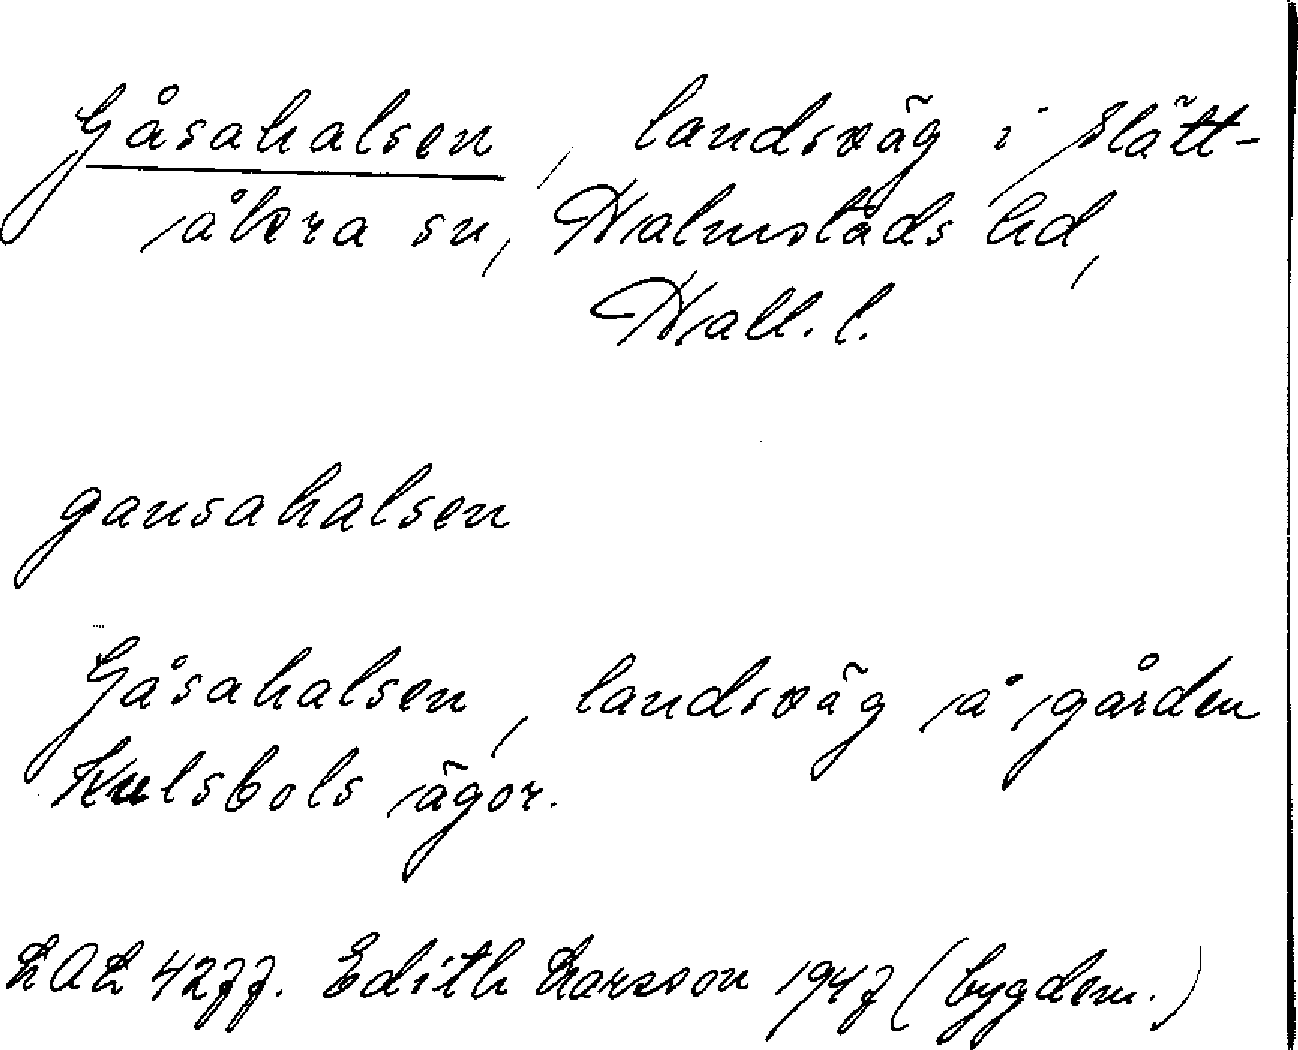 Gåsahalsen, landsväg i Slätt-
åkra sn, Halmstads hd,
Hall. l.
gausahalsen
Gåsahalsen, landsväg å gården
Kulsbols ägor.
LAL 4277. Edith Larsson 1947 (bygdem.)